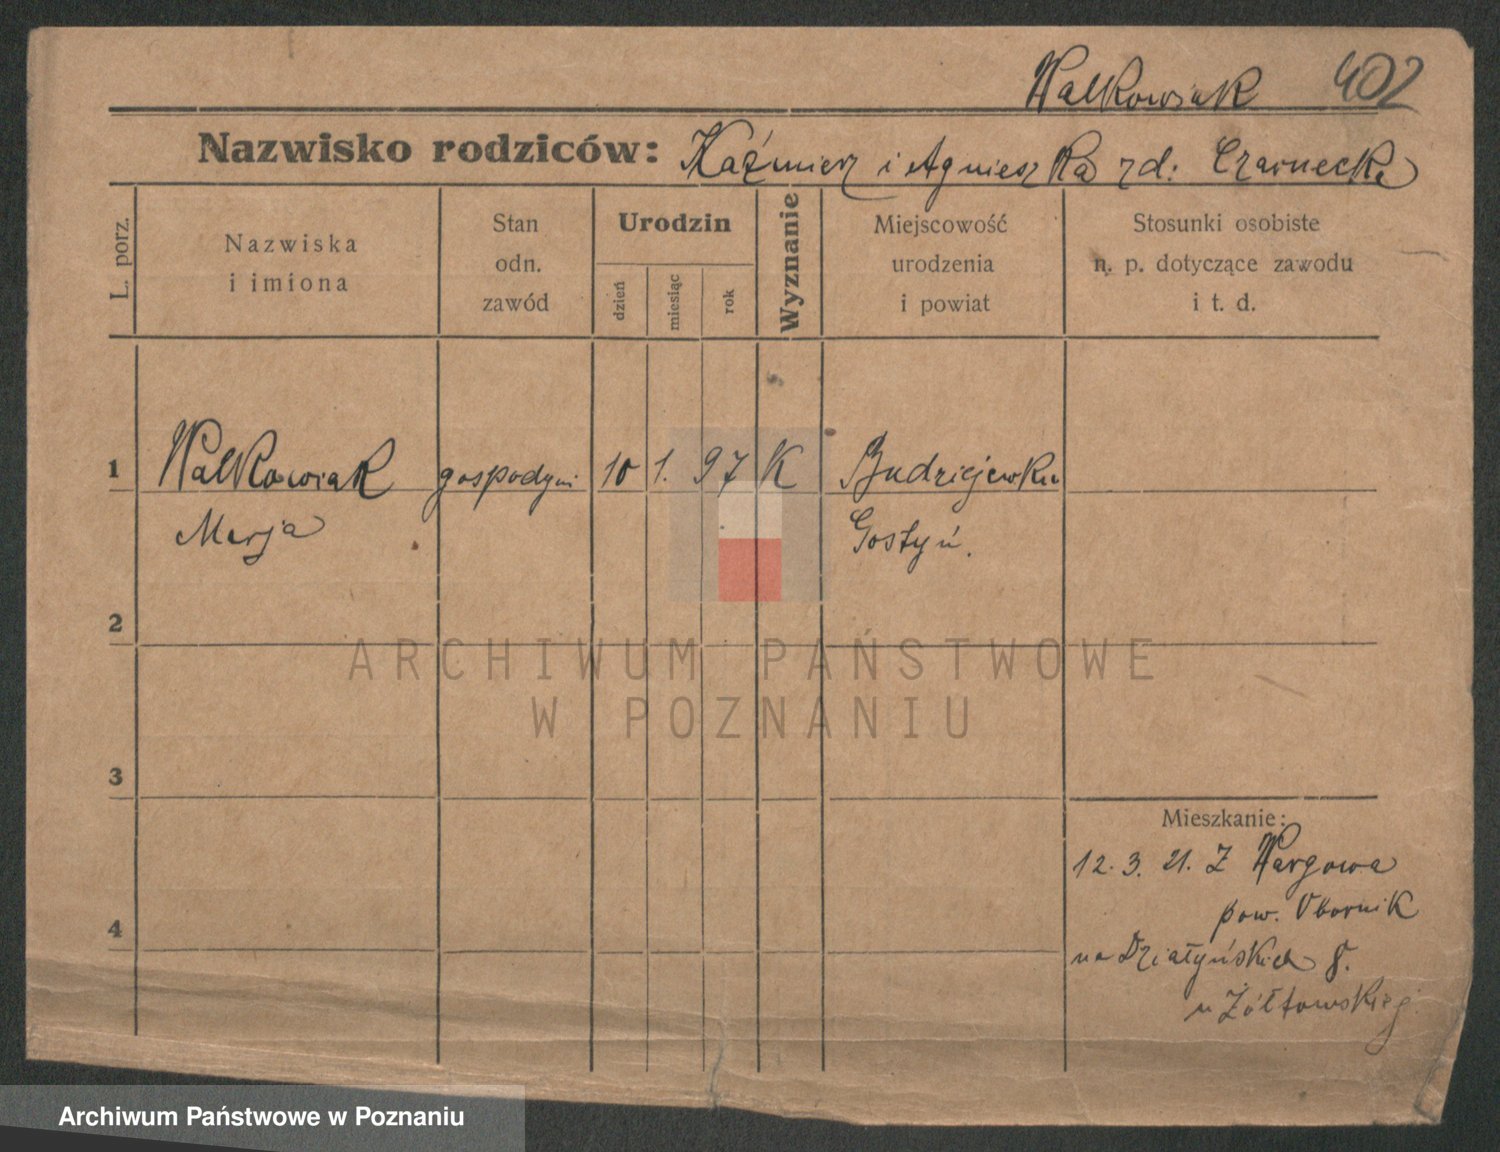 Walkowiak 402
Nazwisko rodziców: Kaźmierz i Agnieszka zd: Czarnecka
L. porz.
Nazwiska
i imiona
Stan
odn.
zawód
Urodzin
dzień
miesiąc
rok
Wyznanie
Miejscowość
urodzenia
i powiat
Stosunki osobiste
n. p. dotyczące zawodu
i t. d.
1 Walkowiak gospodyni 10 1. 97 K Budziejewko
Marja Gostyń.
2
ARCHIWUM PAŃSTWOWE
W POZNANIU
3
Mieszkanie:
12. 3. 21. Z Wargowa
pow. Obornik
4
na Działyńskich 8.
u Żółtowskiej
Archiwum Państwowe w Poznaniu